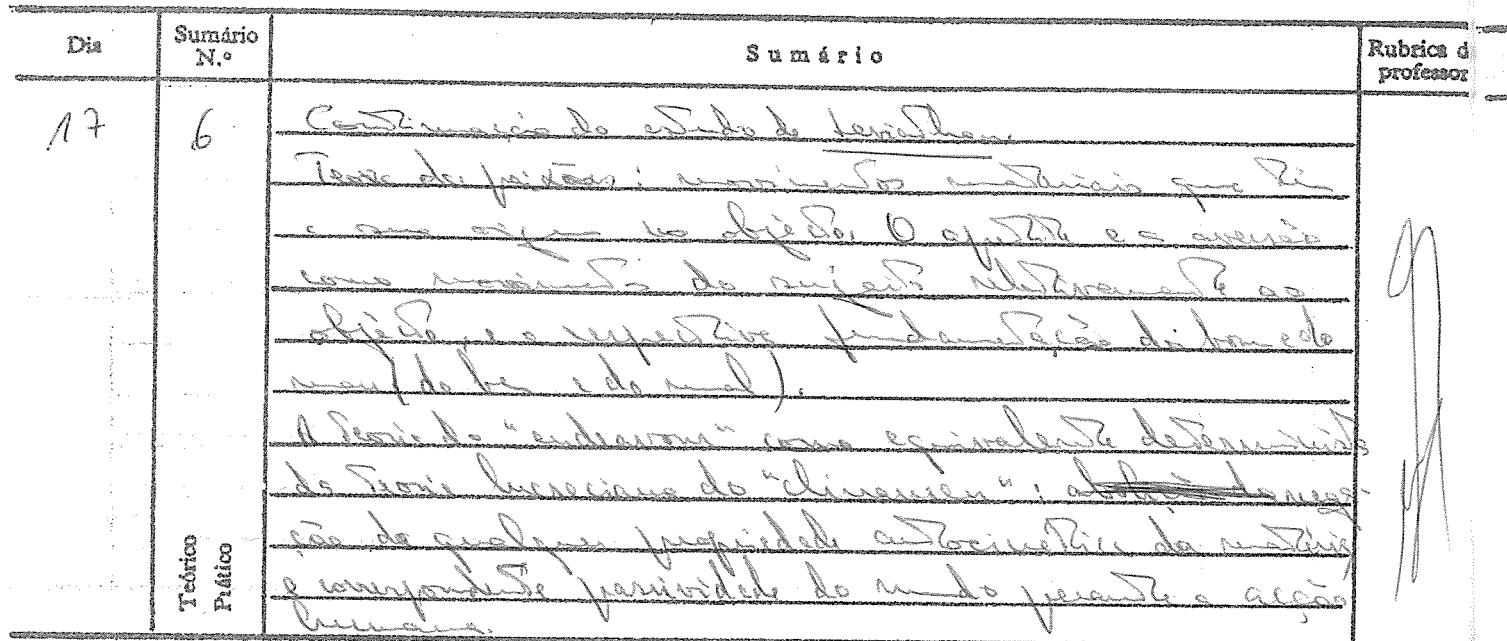 Dia
Sumário N.º
Sumário
Rubrica d
professor
17
6
Continuação do estudo do Leviathan.
Teoria das paixões: movimentos materiais que têm
a sua origem no objecto. O apetite e a aversão
como movimentos do sujeito relativamente ao
objecto, e a respectiva fundamentação do bom e do
mau (do bem e do mal).
A teoria do "endeavour" como equivalente determinista
da teoria lucreciana do "clinamen": da nega-
ção de qualquer propriedade autocinética da matéria,
e correspondente passividade do mundo perante a acção
humana.
Teórico
Prático